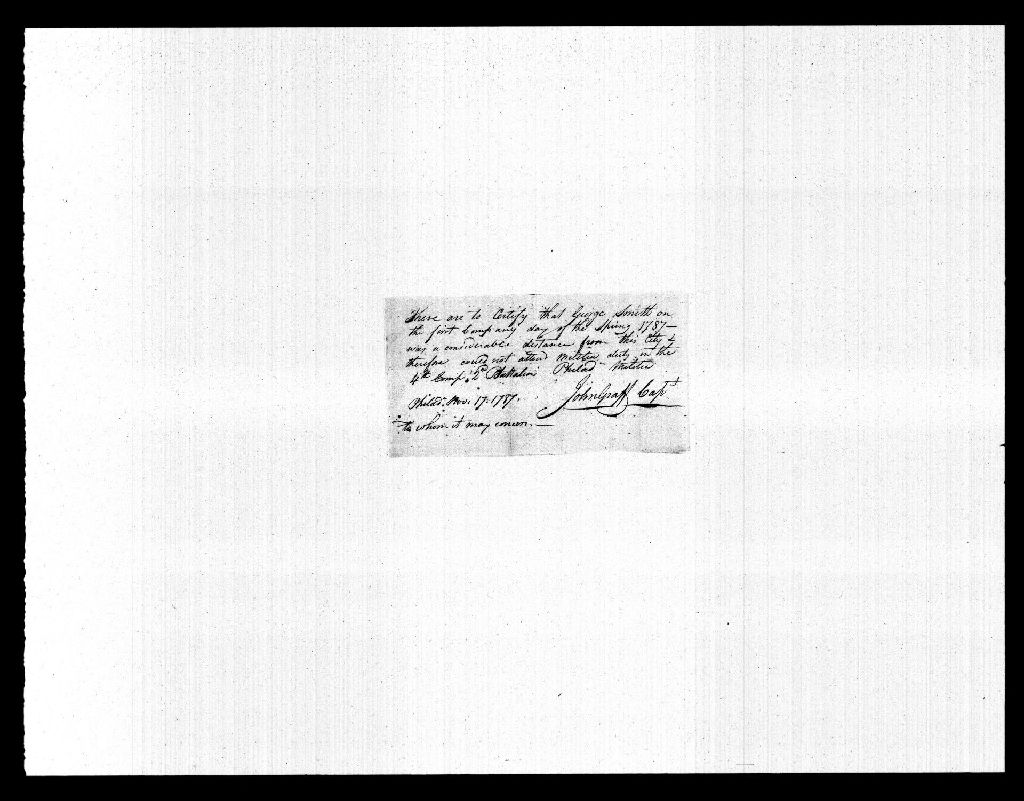 These are to Certify that George Smith on
the first Company day of the Spring 1787—
was a considerable distance from this City &
therefore could not attend Militia duty in the
4th Comp. 2d Battalion Philad Militia
Philad. Nov. 17. 1787. John Graff Capt
to whom it may concern.—